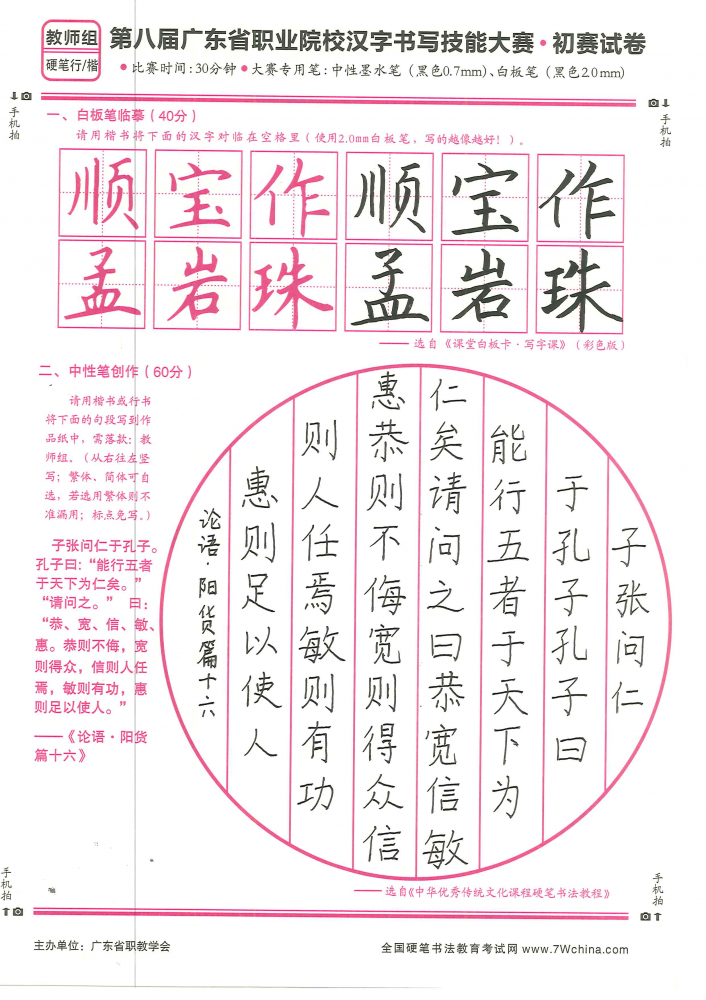 教师组
硬笔行/楷
第八届广东省职业院校汉字书写技能大赛·初赛试卷
●比赛时间:30分钟●大赛专用笔:中性墨水笔(黑色0.7mm)、白板笔(黑色2.0mm)
手机拍
手机拍
一、白板笔临摹(40分)
请用楷书将下面的汉字对临在空格里(使用2.0mm白板笔,写的越像越好!)。
顺宝作顺宝作
孟岩珠孟岩珠
——选自《课堂白板卡·写字课》(彩色版)
二、中性笔创作(60分)
请用楷书或行书
将下面的句段写到作
品纸中,需落款:教
师组。(从右往左竖
写;繁体、简体可自
选,若选用繁体则不
准漏用;标点免写。)
子张问仁于孔子。
孔子曰:“能行五者
于天下为仁矣。”
“请问之。” 曰:
“恭、宽、信、敏、
惠。恭则不侮,宽
则得众,信则人任
焉,敏则有功,惠
则足以使人。”
——《论语·阳货
篇十六》
子张问仁
于孔子孔子曰
能行五者于天下为
仁矣请问之曰恭宽信敏
惠恭则不侮宽则得众信
则人任焉敏则有功
惠则足以使人
论语·阳货篇十六
——选自《中华优秀传统文化课程硬笔书法教程》
手机拍
手机拍
主办单位:广东省职教学会
全国硬笔书法教育考试网 www.7Wchina.com